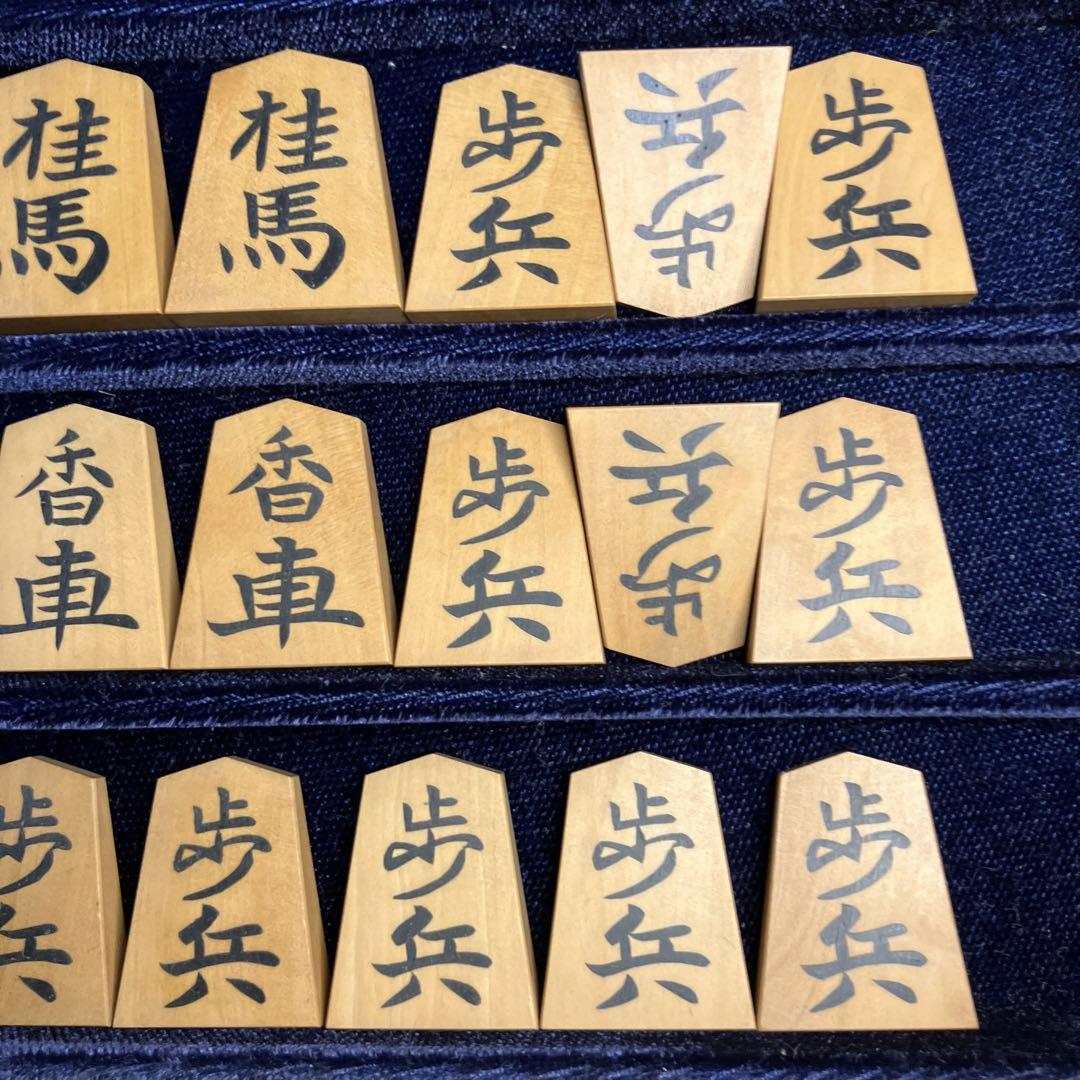 桂馬
桂馬
歩兵
歩兵
歩兵
香車
香車
歩兵
歩兵
歩兵
歩兵
歩兵
歩兵
歩兵
歩兵